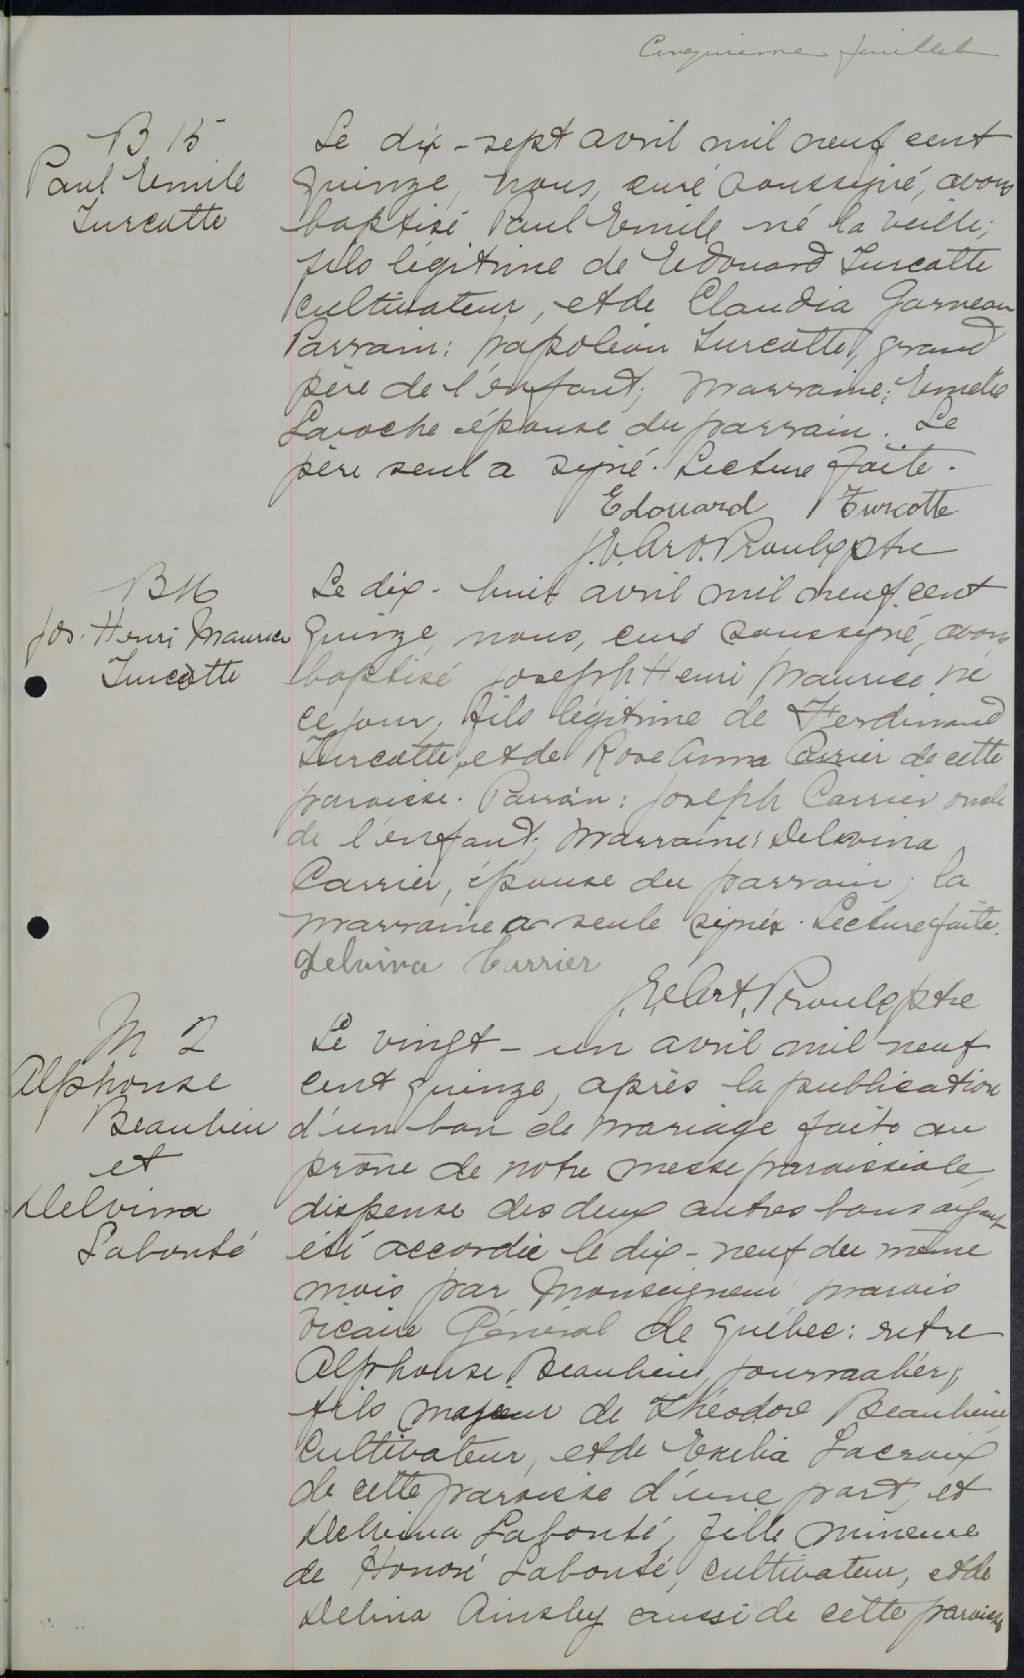 Cinquième feuillet
B 15
Paul Emile
Turcotte
Le dix-sept avril mil neuf cent
quinze, nous, curé soussigné, avons
baptisé Paul Emile né la veille;
fils légitime de Edouard Turcotte
cultivateur, et de Claudia Garneau
Parrain: Napoléon Turcotte, grand
père de l'enfant; Marraine: Emelie
Laroche épouse du parrain. Le
père seul a signé. Lecture faite.
Edouard Turcotte
Proulx ptre
B 16
Jos. Henri Maurice
Turcotte
Le dix-huit avril mil neuf cent
quinze, nous, curé soussigné, avons
baptisé Joseph Henri Maurice né
ce jour, fils légitime de Ferdinand
Turcotte, et de Rose Anna Carrier de cette
paroisse. Parrain: Joseph Carrier oncle
de l'enfant; Marraine: Delvina
Carrier, épouse du parrain; la
marraine a seule signé. Lecture faite.
Delvina Carrier
Proulx ptre
M 2
Alphonse
Beaulieu
et
Delvina
Labonté
Le vingt-un avril mil neuf
cent quinze, après la publication
d'un ban de mariage faite au
prône de notre messe paroissiale,
dispense des deux autres bans ayant
été accordée le dix-neuf du même
mois par Monseigneur Marois
Vicaire Général de Québec: entre
Alphonse Beaulieu, journalier,
fils majeur de Théodore Beaulieu,
cultivateur, et de Exelia Lacroix
de cette paroisse d'une part, et
Delvina Labonté, fille mineure
de Honoré Labonté, cultivateur, et de
Delina Ainsley aussi de cette paroisse